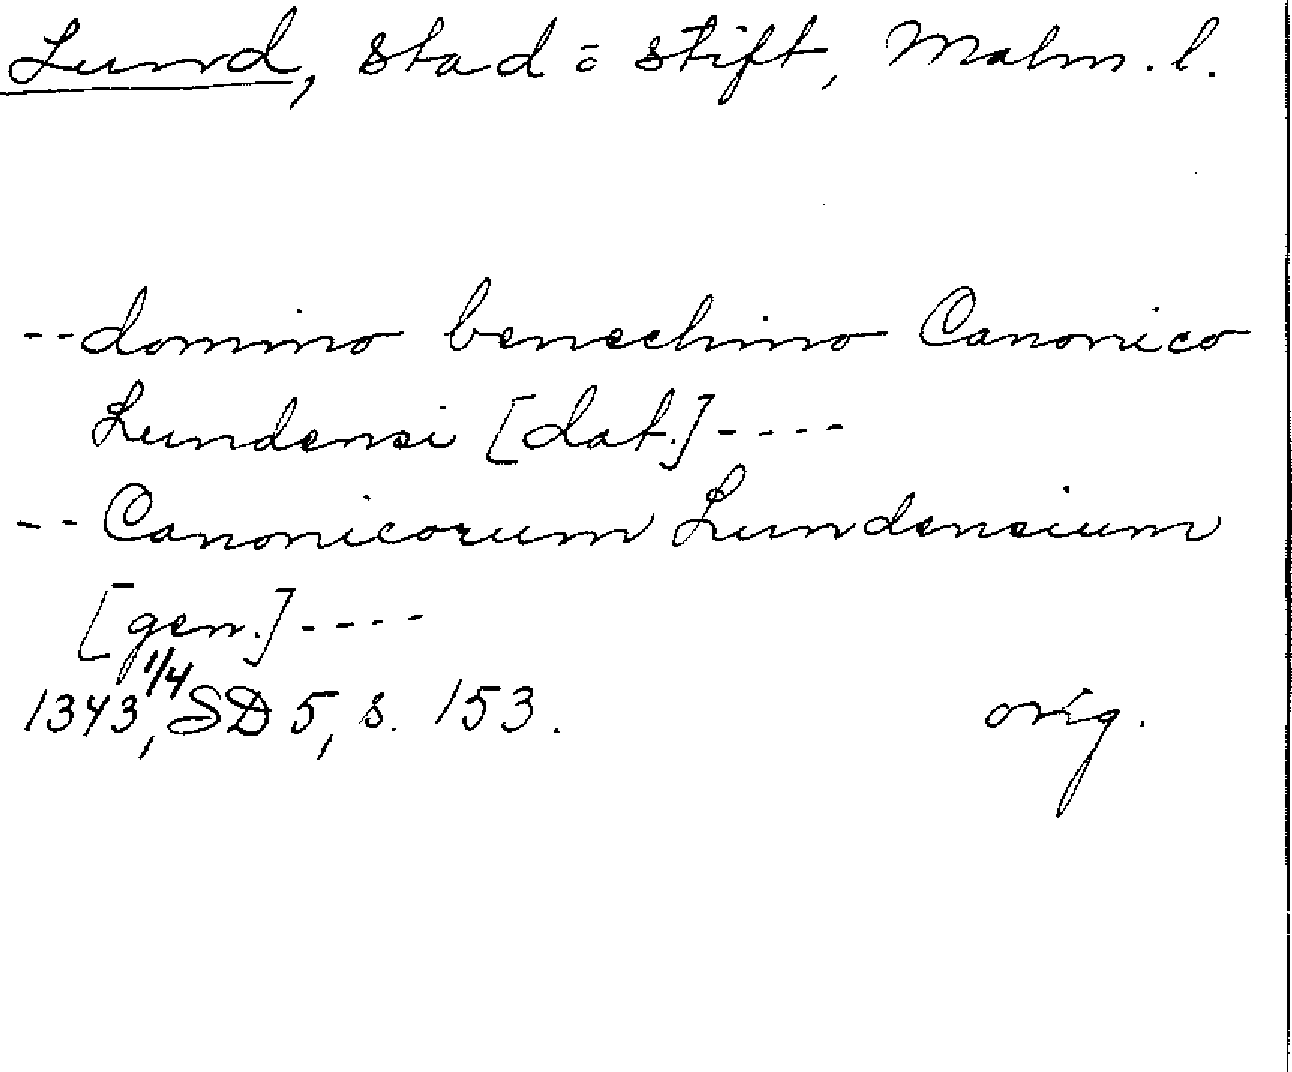 Lund, stad o stift, Malm. l.
-- domino benechino Canonico
Lundensi [dat.] ----
-- Canonicorum Lundensium
[gen.] ----
1343, 1/4 SD 5, s. 153. orig.